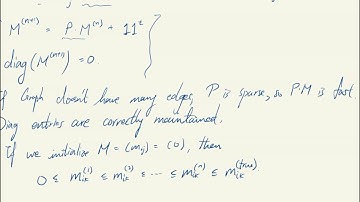 M^(n+1) = P·M^(n) + 11^t
diag(M^(n+1)) = 0.
If Graph doesn't have many edges, P is sparse, so P·M is fast
Diag entries are correctly maintained.
If we initialize M = (m_ij) = (0), then
0 ≤ m_ik^(1) ≤ m_ik^(2) ≤ ··· ≤ m_ik^(n) ≤ m_ik^(true)